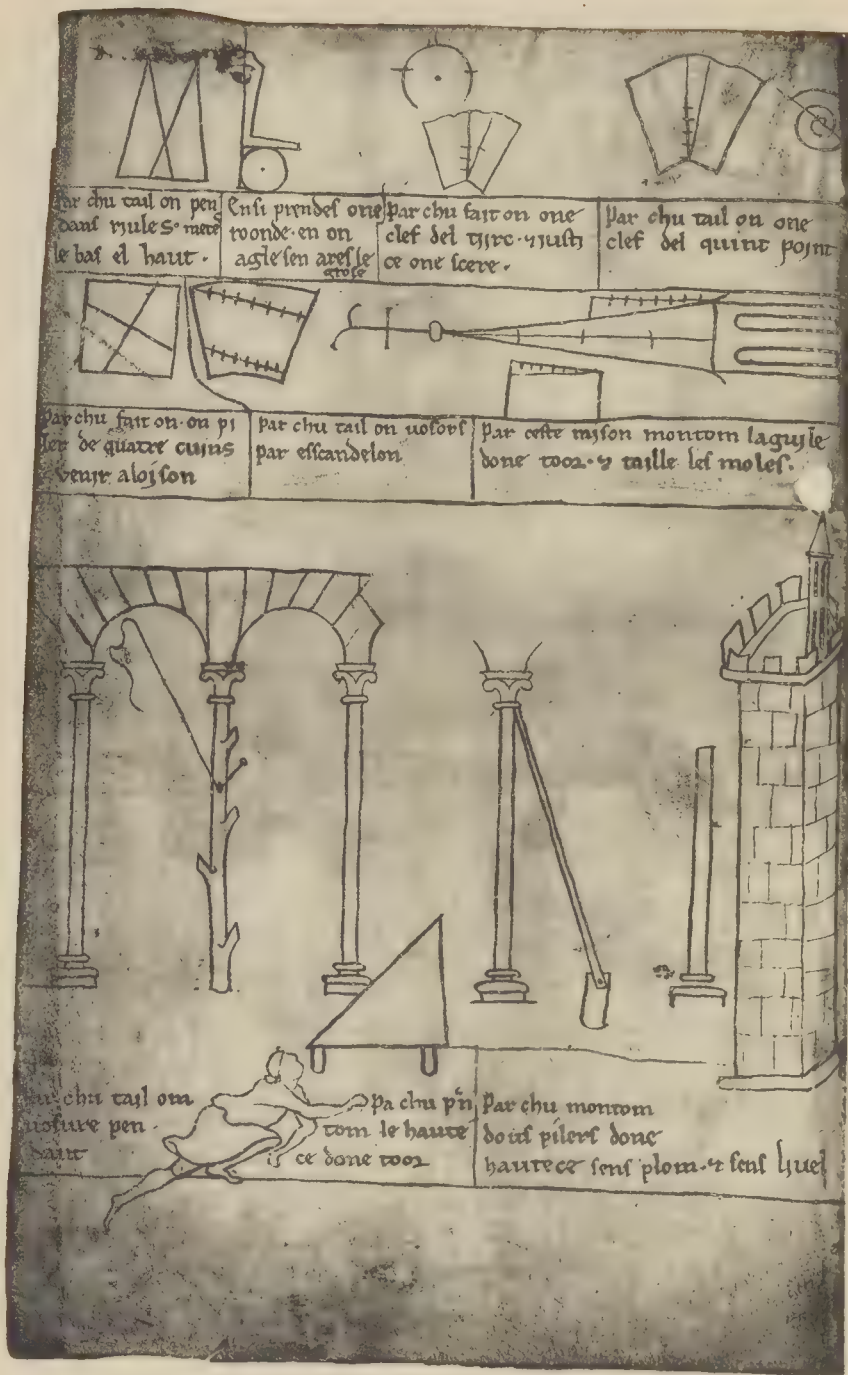 Par chu tail on pen
dans riules S° mete
le bas el haut .
Ensi prendes one
roonde · en on
agle sen ares le
grose
Par chu fait on one
clef del tijrc · ⁊ justi
ce one scere .
Par chu tail on one
clef del quint point
Par chu fait on · on pi
ler de quatre cuins
venir aloison
Par chu tail on vosors
par esscandelon
Par ceste raison montom lagujle
done toor · ⁊ taille les moles .
chu tail om
vosure pen .
haut
Pa chu p'n
tom le haute
ce done toor
Par chu montom
dous pilers done
hautece sens plom · ⁊ sens livel